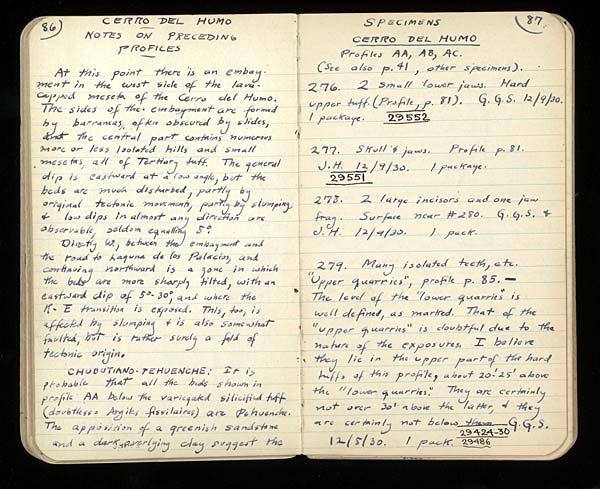 86)
CERRO DEL HUMO
NOTES ON PRECEDING
PROFILES
At this point there is an embay-
ment in the west side of the lava-
capped meseta of the Cerro del Humo.
The sides of the embayment are formed
by barrancas, often obscured by slides,
and the central part contains numerous
more or less isolated hills and small
mesetas, all of Tertiary tuff. The general
dip is eastward at a low angle, but the
beds are much disturbed, partly by
original tectonic movements, partly by slumping,
& low dips in almost any direction are
observable, seldom equalling 5°.
Directly W, between the embayment and
the road to Laguna de los Palacios, and
continuing northward is a zone in which
the beds are more sharply tilted, with an
eastward dip of 5°-30°, and where the
K-E transition is exposed. This, too, is
affected by slumping & is also somewhat
faulted, but is rather surely a fold of
tectonic origin.
CHUBUTIANO-PEHUENCHE: It is
probable that all the beds shown in
profile AA below the variegated silicified tuff
(doubtless Argiles fissilaires) are Pehuenche.
The apposition of a greenish sandstone
and a dark overlying clay suggest the
(87.
SPECIMENS
CERRO DEL HUMO
Profiles AA, AB, AC.
(See also p. 41, other specimens).
276. 2 small lower jaws. Hard
upper tuff. (Profile, p. 81). G.G.S. 12/9/30.
1 package. 29552
277. Skull & jaws. Profile p. 81.
J.H. 12/9/30. 1 package.
29551
278. 2 large incisors and one jaw
frag. Surface near #280. G.G.S. &
J.H. 12/9/30. 1 pack.
279. Many isolated teeth, etc.
"Upper quarries", profile p. 85. —
The level of the "lower quarries" is
well defined, as marked. That of the
"upper quarries" is doubtful due to the
nature of the exposures. I believe
they lie in the upper part of the hard
tuffs of this profile, about 20'-25' above
the "lower quarries". They are certainly
not over 30' above the latter, & they
are certainly not below them. G.G.S.
12/5/30. 1 pack. 29424-30
29486